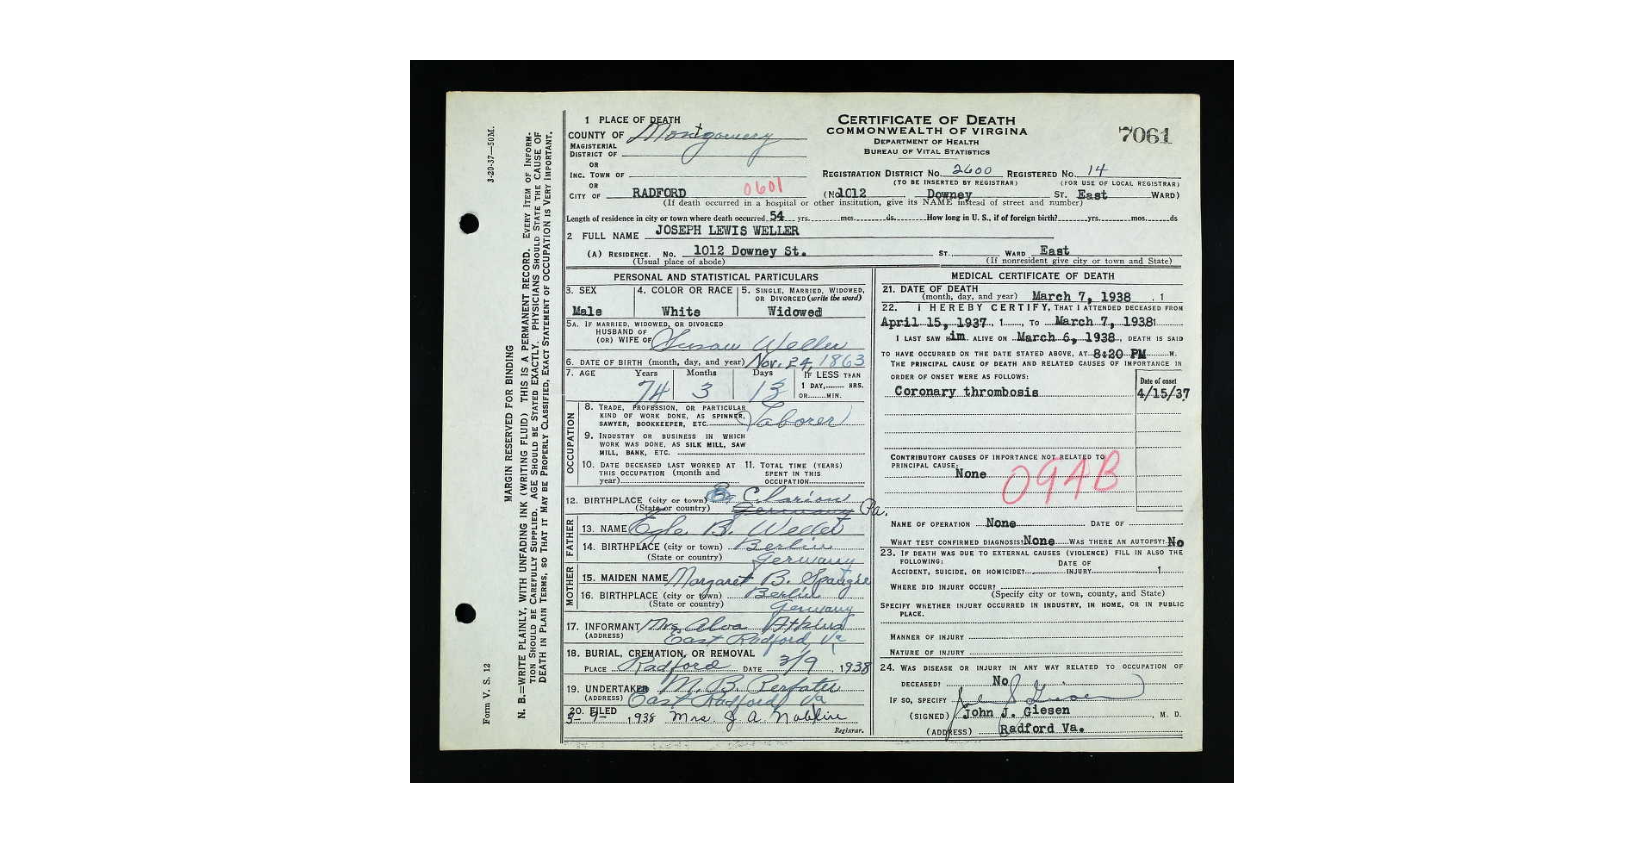 3-20-37—50M.
MARGIN RESERVED FOR BINDING
Form V. S. 12
N. B.—WRITE PLAINLY, WITH UNFADING INK (WRITING FLUID) THIS IS A PERMANENT RECORD. EVERY ITEM OF INFORM-
TION SHOULD BE CAREFULLY SUPPLIED. AGE SHOULD BE STATED EXACTLY. PHYSICIANS SHOULD STATE THE CAUSE OF
DEATH IN PLAIN TERMS, SO THAT IT MAY BE PROPERLY CLASSIFIED, EXACT STATEMENT OF OCCUPATION IS VERY IMPORTANT.
CERTIFICATE OF DEATH
COMMONWEALTH OF VIRGINIA
DEPARTMENT OF HEALTH
BUREAU OF VITAL STATISTICS
7061
1 PLACE OF DEATH
COUNTY OF Montgomery
MAGISTERIAL
DISTRICT OF
OR
INC. TOWN OF
OR
REGISTRATION DISTRICT NO. 2600 REGISTERED NO. 14
(TO BE INSERTED BY REGISTRAR) (FOR USE OF LOCAL REGISTRAR)
CITY OF RADFORD 0601 (No. 1012 Downey ST. East WARD)
(If death occurred in a hospital or other institution, give its NAME instead of street and number)
Length of residence in city or town where death occurred 54 yrs. mos. ds. How long in U. S., if of foreign birth? yrs. mos. ds
2 FULL NAME JOSEPH LEWIS WELLER
(A) RESIDENCE. No. 1012 Downey St. ST. WARD East
(Usual place of abode) (If nonresident give city or town and State)
PERSONAL AND STATISTICAL PARTICULARS
3. SEX 4. COLOR OR RACE 5. SINGLE, MARRIED, WIDOWED,
OR DIVORCED (write the word)
Male White Widowed
5A. IF MARRIED, WIDOWED, OR DIVORCED
HUSBAND OF
(OR) WIFE OF Susan Weller
6. DATE OF BIRTH (month, day, and year) Nov. 24, 1863
7. AGE Years Months Days IF LESS THAN
74 3 13 1 DAY, HRS.
OR MIN.
OCCUPATION
8. TRADE, PROFESSION, OR PARTICULAR
KIND OF WORK DONE, AS SPINNER,
SAWYER, BOOKKEEPER, ETC. Laborer
9. INDUSTRY OR BUSINESS IN WHICH
WORK WAS DONE, AS SILK MILL, SAW
MILL, BANK, ETC.
10. DATE DECEASED LAST WORKED AT 11. TOTAL TIME (YEARS)
THIS OCCUPATION (month and SPENT IN THIS
year) OCCUPATION
12. BIRTHPLACE (city or town) Clarion
(State or country) Germany Pa.
FATHER
13. NAME B. Weller
14. BIRTHPLACE (city or town) Berlin
(State or country) Germany
MOTHER
15. MAIDEN NAME Margaret B.
16. BIRTHPLACE (city or town) Berlin
(State or country) Germany
17. INFORMANT Mrs. Alva Atkins
(ADDRESS) East Radford, Va
18. BURIAL, CREMATION, OR REMOVAL
PLACE Radford DATE 3/9 1938
19. UNDERTAKER M. B.
(ADDRESS) East Radford Va
20. FILED
3-9- 1938 Mrs. J. A.
Registrar.
MEDICAL CERTIFICATE OF DEATH
21. DATE OF DEATH
(month, day, and year) March 7, 1938 , 1
22. I HEREBY CERTIFY, THAT I ATTENDED DECEASED FROM
April 15, 1937, 1 , TO March 7, 1938
I LAST SAW Him ALIVE ON March 6, 1938, DEATH IS SAID
TO HAVE OCCURRED ON THE DATE STATED ABOVE, AT 8:20 PM M.
THE PRINCIPAL CAUSE OF DEATH AND RELATED CAUSES OF IMPORTANCE IN
ORDER OF ONSET WERE AS FOLLOWS:
Date of onset
Coronary thrombosis 4/15/37
CONTRIBUTORY CAUSES OF IMPORTANCE NOT RELATED TO
PRINCIPAL CAUSE:
None
094B
NAME OF OPERATION None DATE OF
WHAT TEST CONFIRMED DIAGNOSIS? None WAS THERE AN AUTOPSY? No
23. IF DEATH WAS DUE TO EXTERNAL CAUSES (VIOLENCE) FILL IN ALSO THE
FOLLOWING:
DATE OF
ACCIDENT, SUICIDE, OR HOMICIDE? INJURY 1
WHERE DID INJURY OCCUR?
(Specify city or town, county, and State)
SPECIFY WHETHER INJURY OCCURRED IN INDUSTRY, IN HOME, OR IN PUBLIC
PLACE.
MANNER OF INJURY
NATURE OF INJURY
24. WAS DISEASE OR INJURY IN ANY WAY RELATED TO OCCUPATION OF
DECEASED? No
IF SO, SPECIFY
(SIGNED) John J. Giesen , M. D.
(ADDRESS) Radford Va.